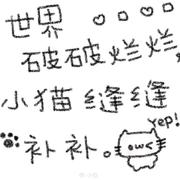 世界
破破烂烂,
小猫缝缝
补补。
Yep!